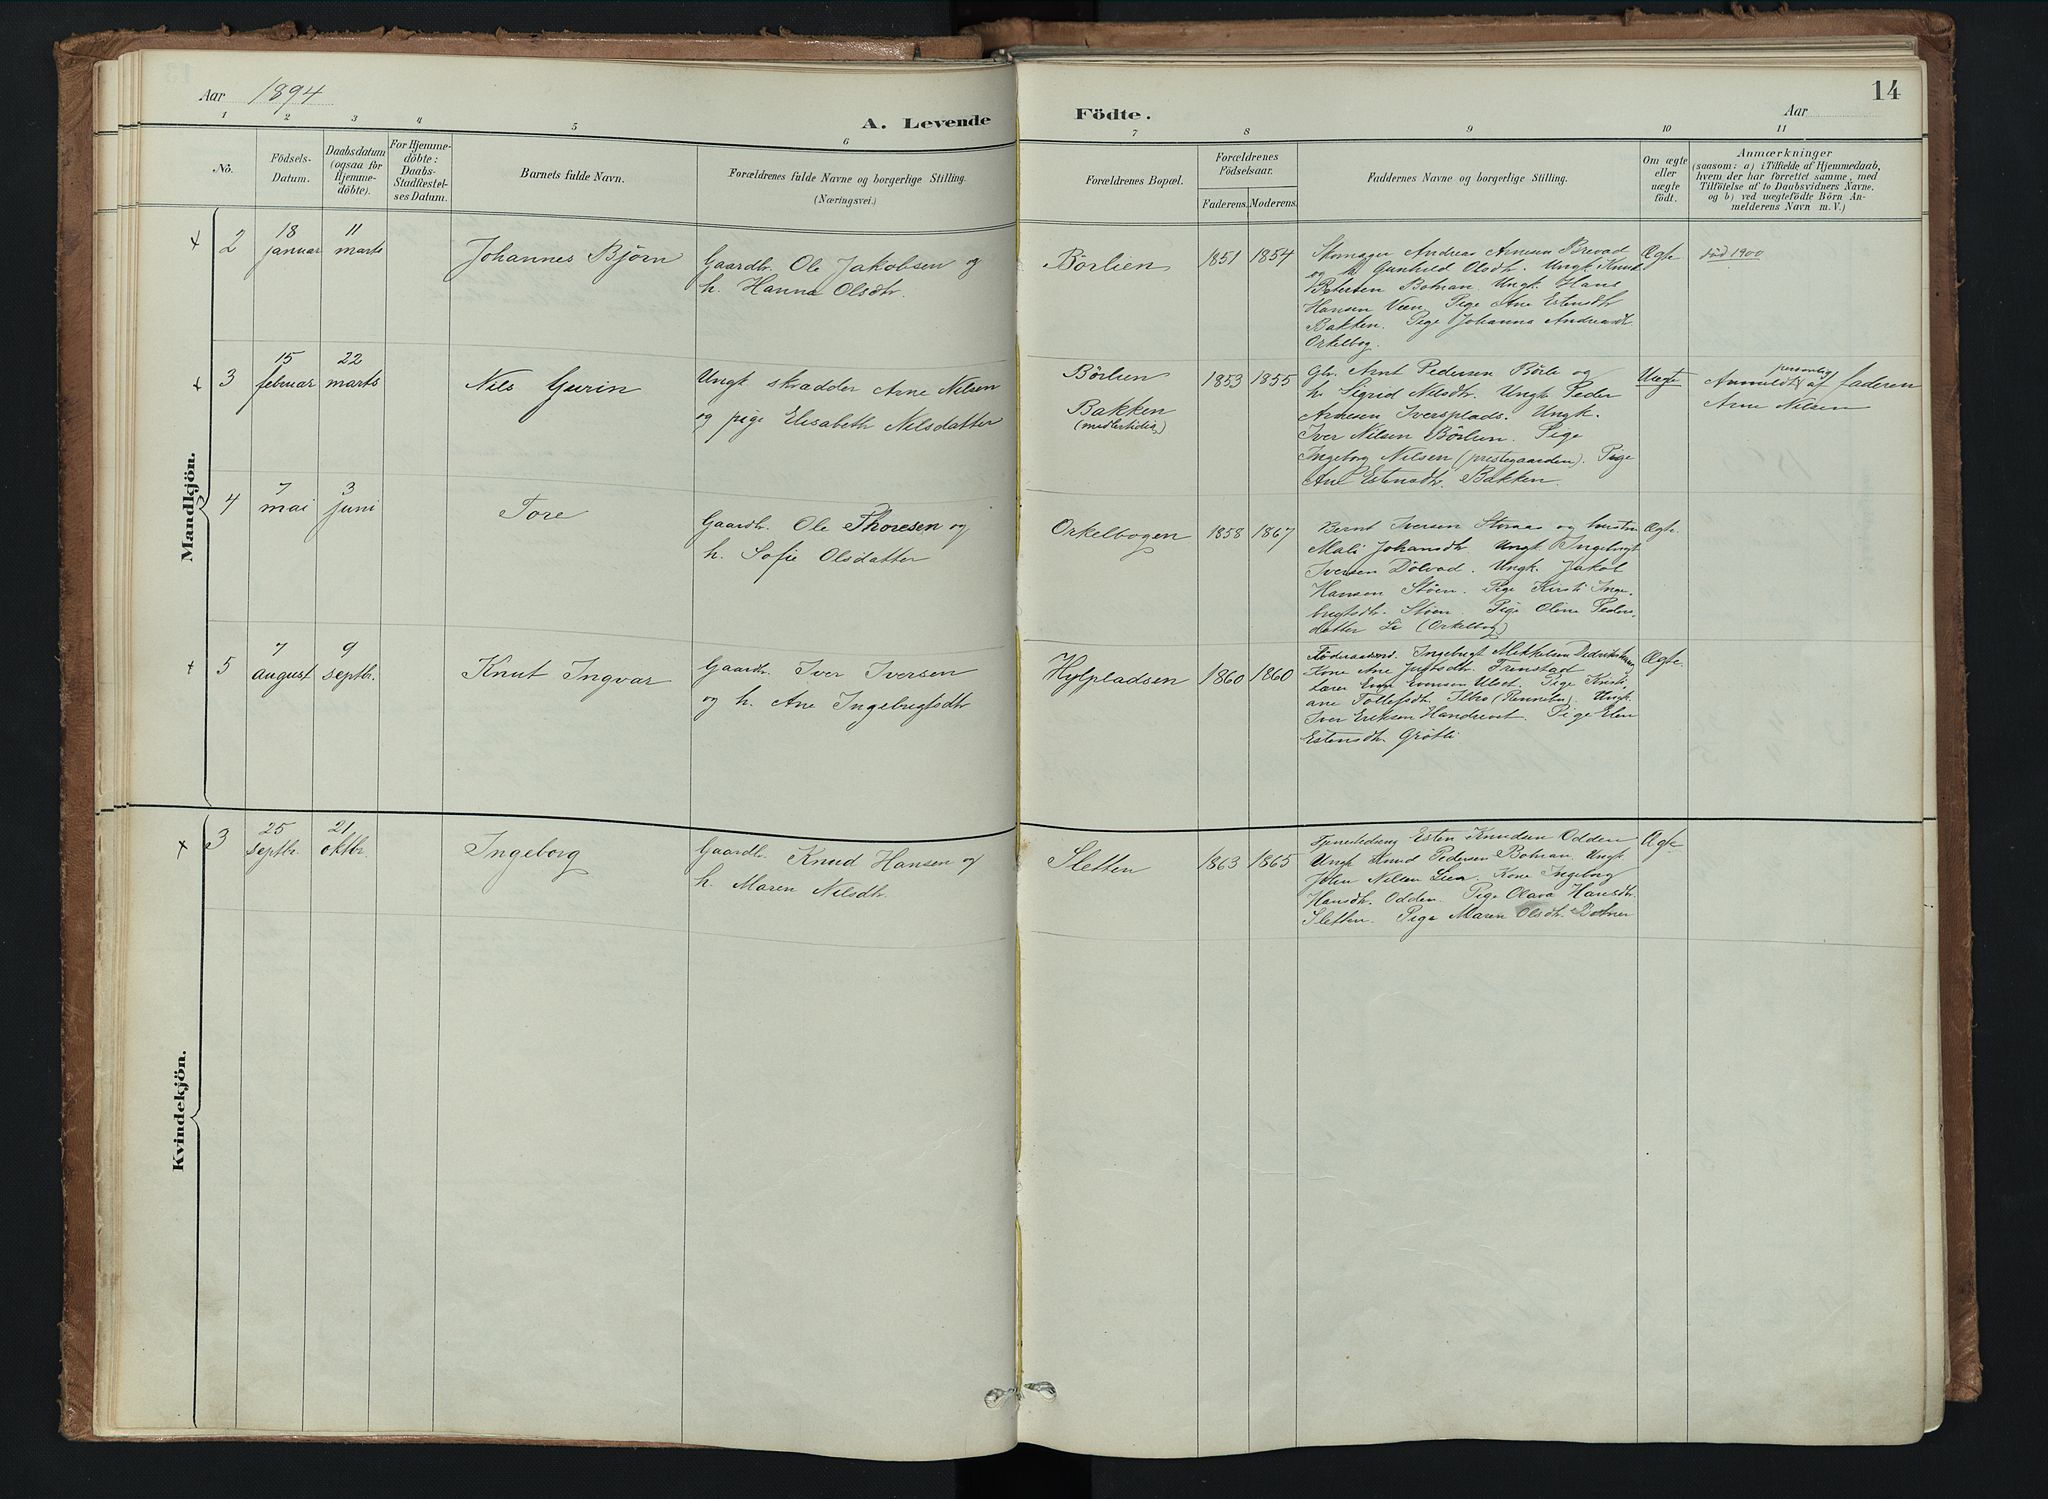 Aar 1894
A. Levende
Födte.
Aar
14
1 2 3 4 5 6 7 8 9 10 11
No.
Födsels-
Datum.
Daabsdatum
(ogsaa for
Hjemme-
döbte).
For Hjemme-
döbte:
Daabs-
Stadfæstel-
ses Datum.
Barnets fulde Navn.
Forældrenes fulde Navne og borgerlige Stilling.
(Næringsvei.)
Forældrenes Bopæl.
Forældrenes
Födselsaar.
Faderens. Moderens.
Faddernes Navne og borgerlige Stilling.
Om ægte
eller
uægte
født.
Anmærkninger
(saasom: a) i Tilfælde af Hjemmedaab,
hvem der har forrettet samme, med
Tilföielse af to Daabsvidners Navne,
og b) ved uægtefödte Börn An-
melderens Navn m. V.)
Mandkjön.
2
18
januar
11
marts
Johannes Bjørn
Gaardbr. Ole Jakobsen og
h. Hanna Olsdtr.
Börlien
1851 1854
Skomager Andreas Arnesen Brevad
og h. Gunhild Olsdtr. Ungk. Knud
Botnan. Ungk. Hans
Hansen Veen. Pige Ane Estensdtr
Bakken. Pige Johanna Andreasdtr
Orkelbog.
Ægte
död 1900
3
15
februar
22
marts
Nils Gurin
Ungk skrædder Arne Nilsen
og pige Elisabeth Nilsdatter
Börlien
Bakken
(midlertidig)
1853 1855
Gbr. Arnt Pedersen Börli og
h. Sigrid Nilsdtr. Ungk. Peder
Arnesen Iversplads. Ungk.
Iver Nilsen Börlien. Pige
Ingeborg Nilsen (prestegaarden). Pige
Ane Estensdtr. Bakken.
Uægte
personlig
Anmeldt af faderen
Arne Nilsen
4
7
mai
3
juni
Tore
Gaardbr. Ole Thoresen og
h. Sofie Olsdatter
Orkelbogen
1858 1867
Bernt Iversen og hustru
Mali Johansdtr. Ungk. Ingebrigt
Iversen Dölvad. Ungk. Jakob
Hansen Stöen. Pige Kirsti Inge-
brigtsdtr. Stöen. Pige Oline Peders-
datter Li (Orkelbog)
Ægte.
5
7
august
9
septbr.
Knut Ingvar
Gaardbr. Iver Iversen
og h. Ane Ingebrigtsdtr
Hylpladsen
1860 1860
Föderaadsmd. Ingebrigt Mikkelsen
Kone Ane
Lærer
ane Tollefsdtr. (Rennebu). Ungk.
Iver Eriksen Pige Elen
Estensdtr. Grötli
Ægte.
Kvindekjön.
3
25
septbr.
21
oktbr.
Ingeborg
Gaardbr. Knud Hansen og
h. Maren Nilsdtr.
Sletten
1863 1865
Esten Knudsen Odden
Ungk Knud Pedersen Botnan. Ungk
John Nilsen Lien. Kone Ingeborg
Hansdtr. Odden. Pige Olava Hansdtr.
Sletten. Pige Maren Olsdtr.
Ægte